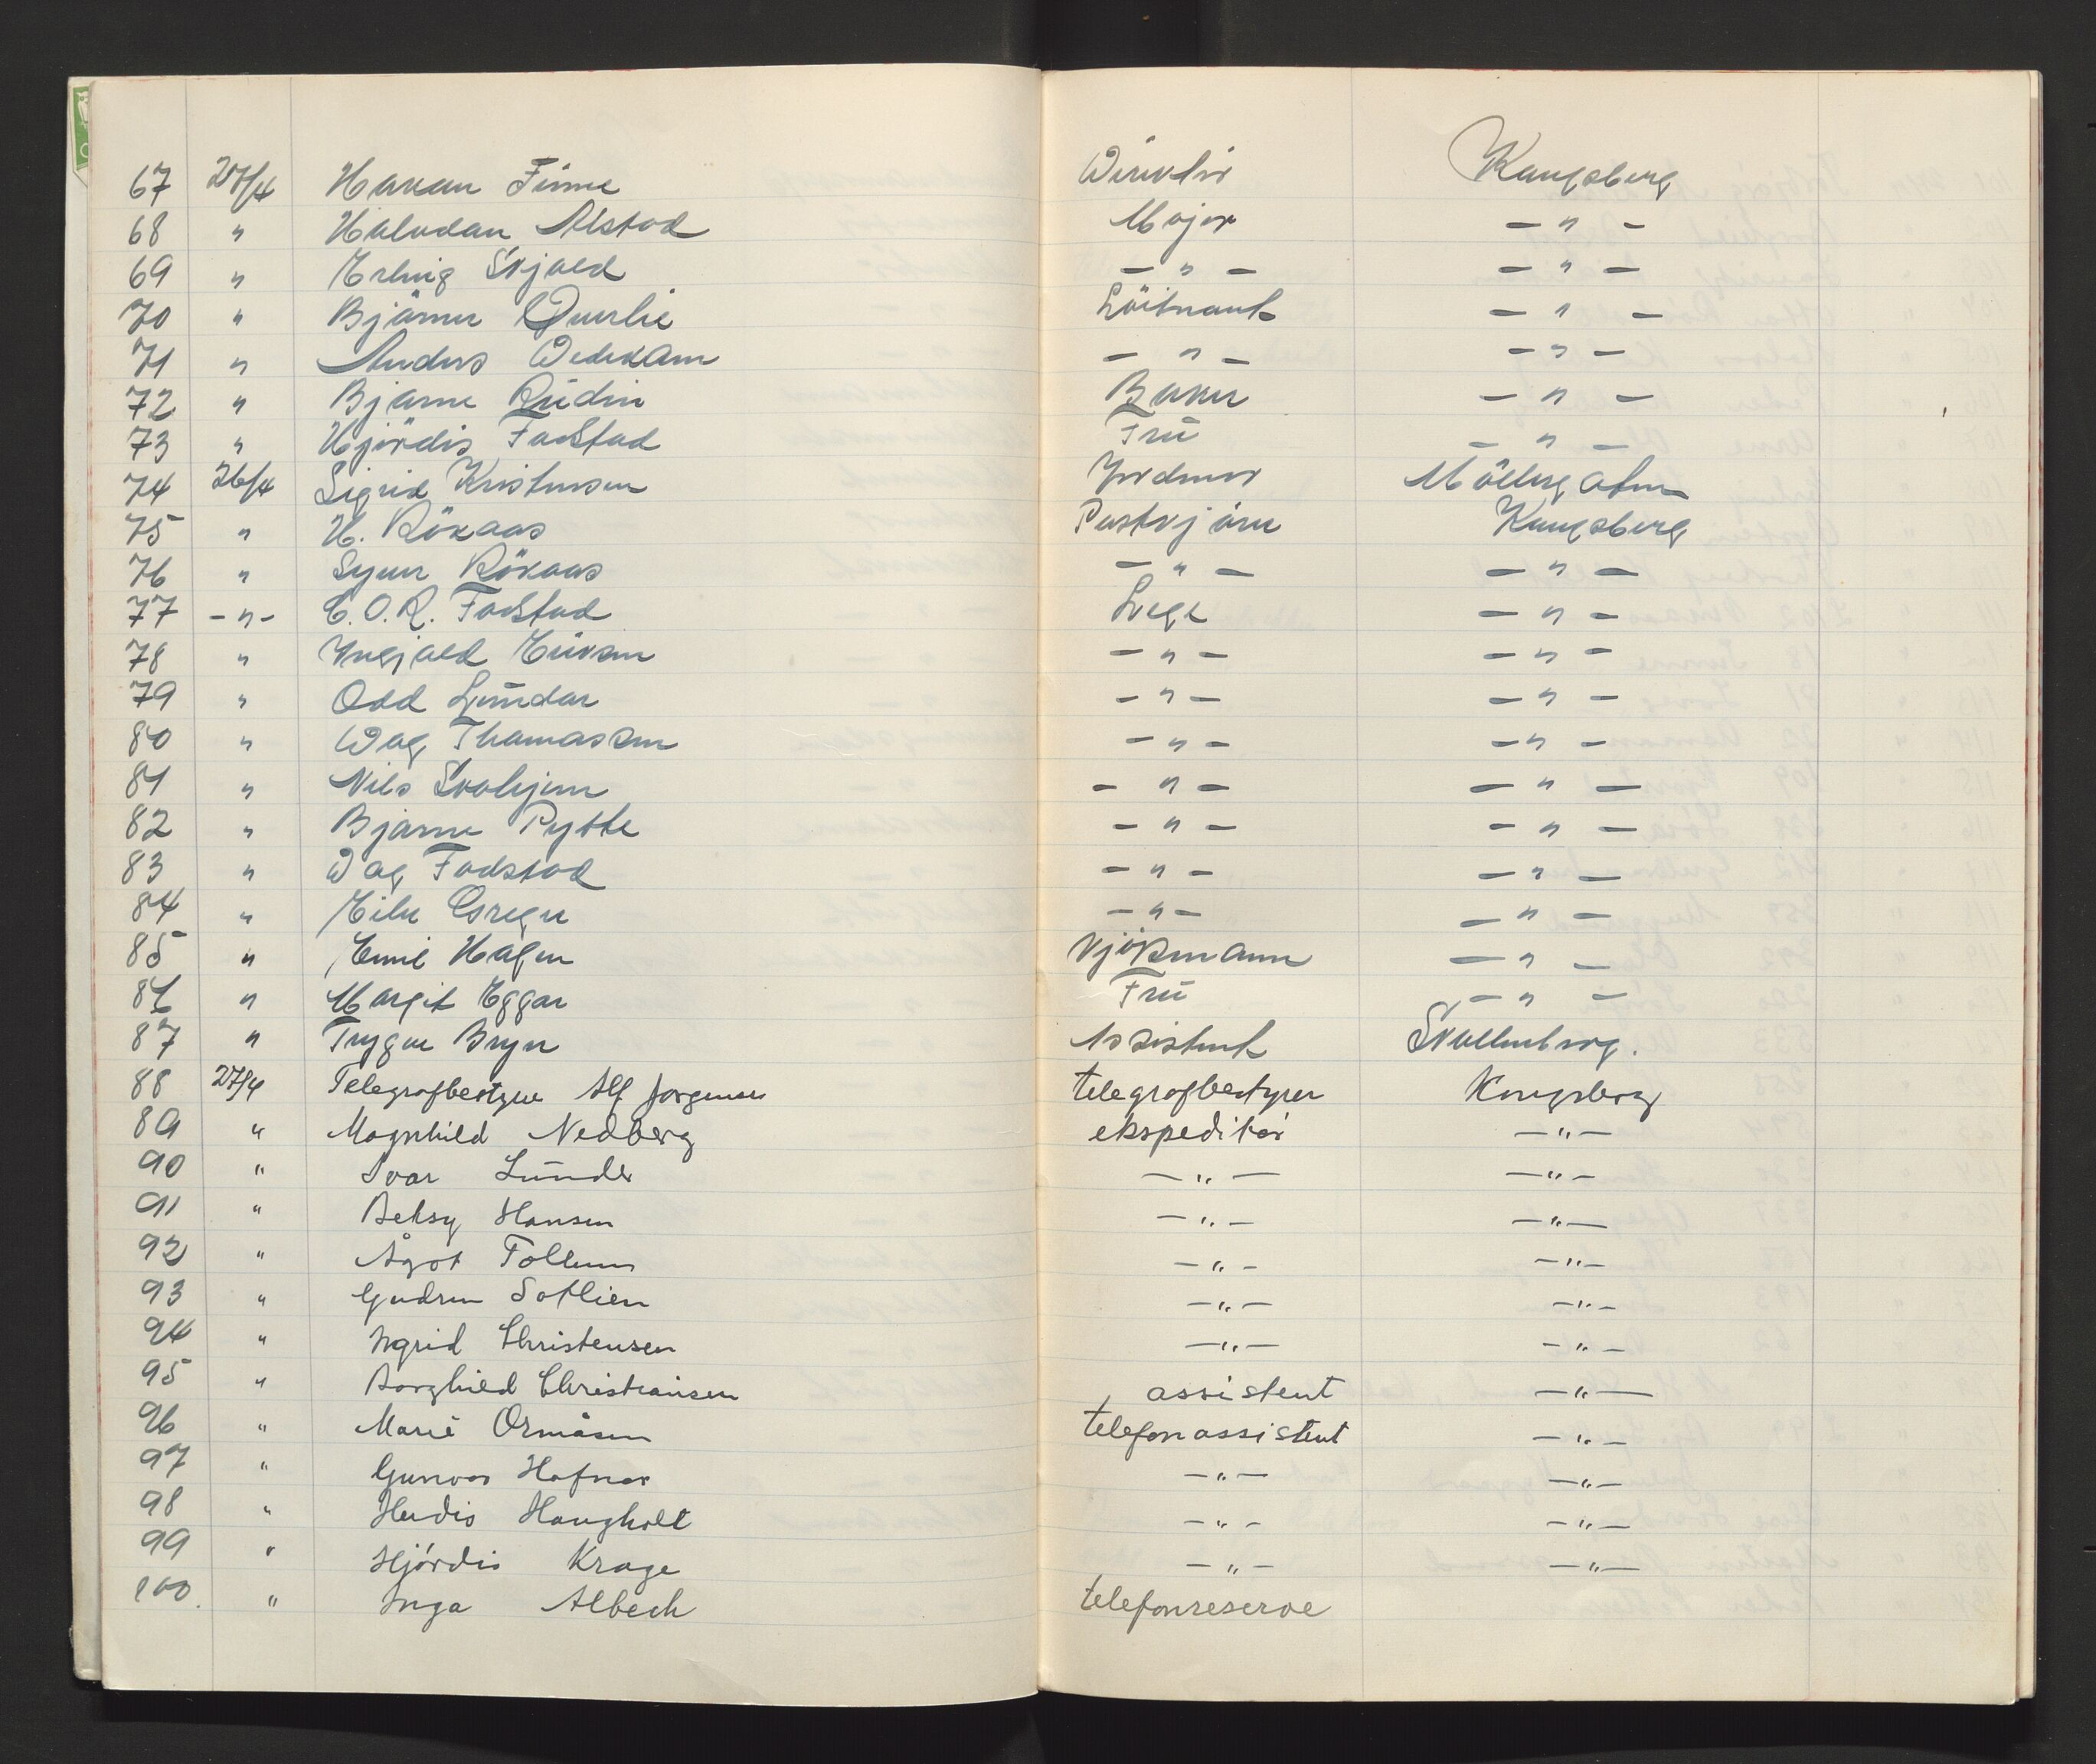 67 27/4 Haakan Finne Direktör Kongsberg
68 " Halvdan Alstad Major - " -
69 " Erling Skjold - " - - " -
70 " Bjarne Löitnant - " -
71 " Anders Vedekam - " - - " -
72 " Bjarne Rudin Baker - " -
73 " Hjördis Fadstad Fru - " -
74 26/4 Sigrid Kristensen Jordmor
75 " H. Rökaas Postkjörer Kongsberg
76 " Rökaas - " - - " -
77 - " - C.O.R. Fadstad Lege - " -
78 " Ingjald Eriksen - " - - " -
79 " Odd Lundar - " - - " -
80 " Dag Thomassen - " - - " -
81 " Nils - " - - " -
82 " Bjarne Pytte - " - - " -
83 " Dag Fadstad - " - - " -
84 " - " - - " -
85 " Emil Hagen Kjöpmann - " -
86 " Margit Eggar Fru - " -
87 " Trygve Bryn Assistent Skollenborg.
88 27/4 Telegrafbestyrer Alf Jørgensen telegrafbestyrer Kongsberg
89 " Magnhild Nedberg ekspeditør - " -
90 " Ivar Lunder - " - - " -
91 " Betsy Hansen - " - - " -
92 " Ågot Follum - " - - " -
93 " Gudrun Sotlien - " - - " -
94 " Ingrid Christensen - " - - " -
95 " Borghild Christiansen assistent - " -
96 " Marie Ormåsen telefonassistent - " -
97 " Gunvor Hafnor - " - - " -
98 " Herdis Haugholt - " - - " -
99 " Hjørdis Krage - " - - " -
100. " Inga Albech telefonreserve